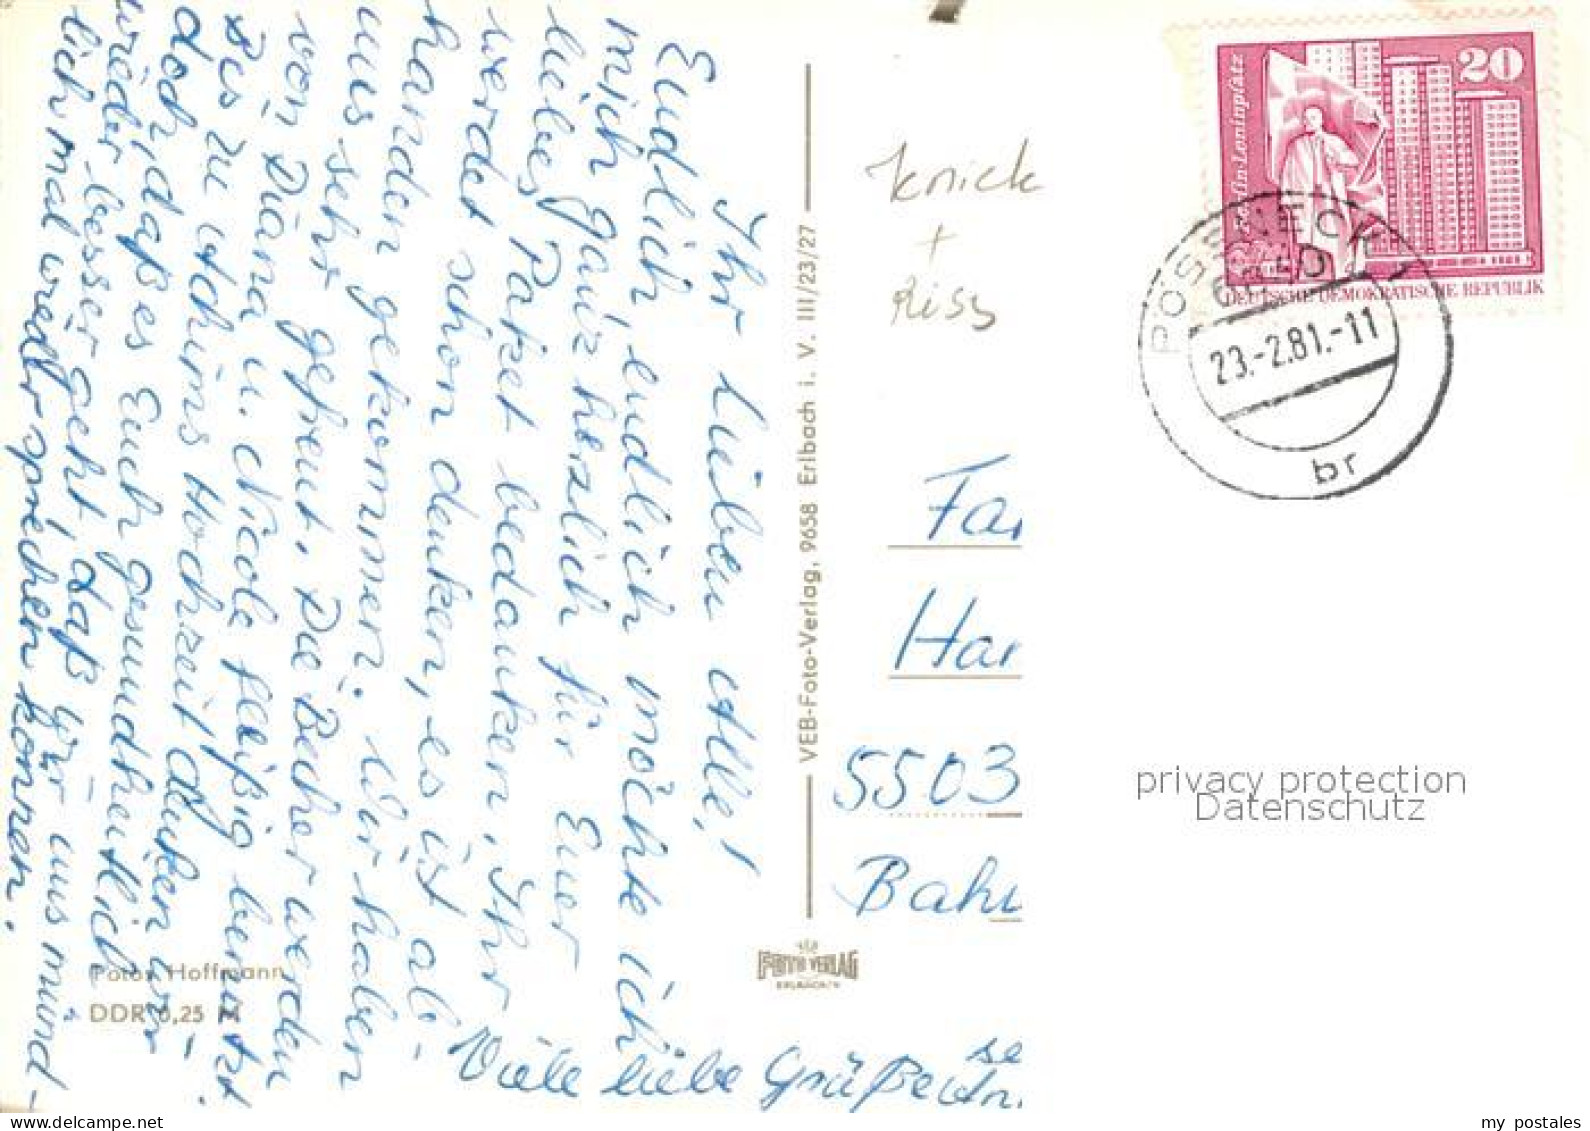 Ihr Lieben Alle!
Endlich endlich möchte ich
mich ganz herzlich für Euer
liebes Paket bedanken. Ihr
werdet schon denken, es ist ab-
handen gekommen. Wir haben
uns sehr gefreut. Die Becher werden
von Diana u. Nicole fleißig benutzt
Bis zu Achims Hochzeit dauert
doch, daß es Euch gesundheitlich
wieder besser geht, daß wir uns münd-
lich mal wieder sprechen können.
Viele liebe Grüße
se
Peter Hoffmann
DDR 0,25 M
VEB-Foto-Verlag, 9658 Erlbach i. V. III/23/27
FOTO VERLAG
ERLBACH/V
Knick
+
Riss
20
Berlin-Leninplatz
DEUTSCHE DEMOKRATISCHE REPUBLIK
PÖSSNECK 1
6840
23.-2.81.-11
br
Fa
Har
5503
Bah
privacy protection
Datenschutz
my postales